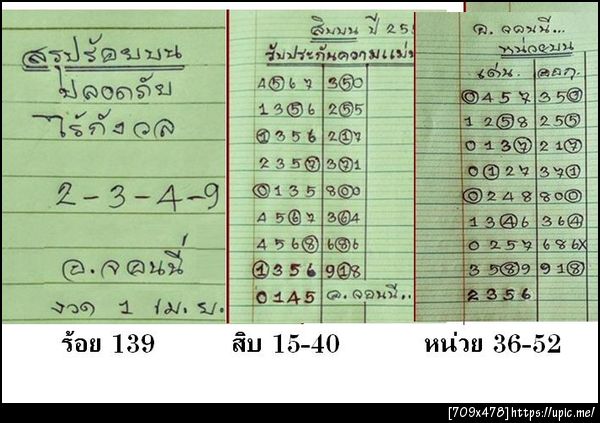 สรุปร้อยบน
ปลอดภัย
ไร้กังวล
2-3-4-9
อ.จอนนี่
งวด 1 เม.ย.
สิบบน ปี 255
รับประกันความแม่น
4567 350
1356 255
1356 217
2357 371
0135 800
4567 364
4568 686
1356 918
0145 อ.จอนนี่..
อ. จอนนี่...
หน่วยบน
เด่น. ออก.
0457 350
1258 255
0137 217
0127 371
0248 800
1346 364
0257 686x
3589 918
2356
ร้อย 139
สิบ 15-40
หน่วย 36-52
[709x478]https://upic.me/